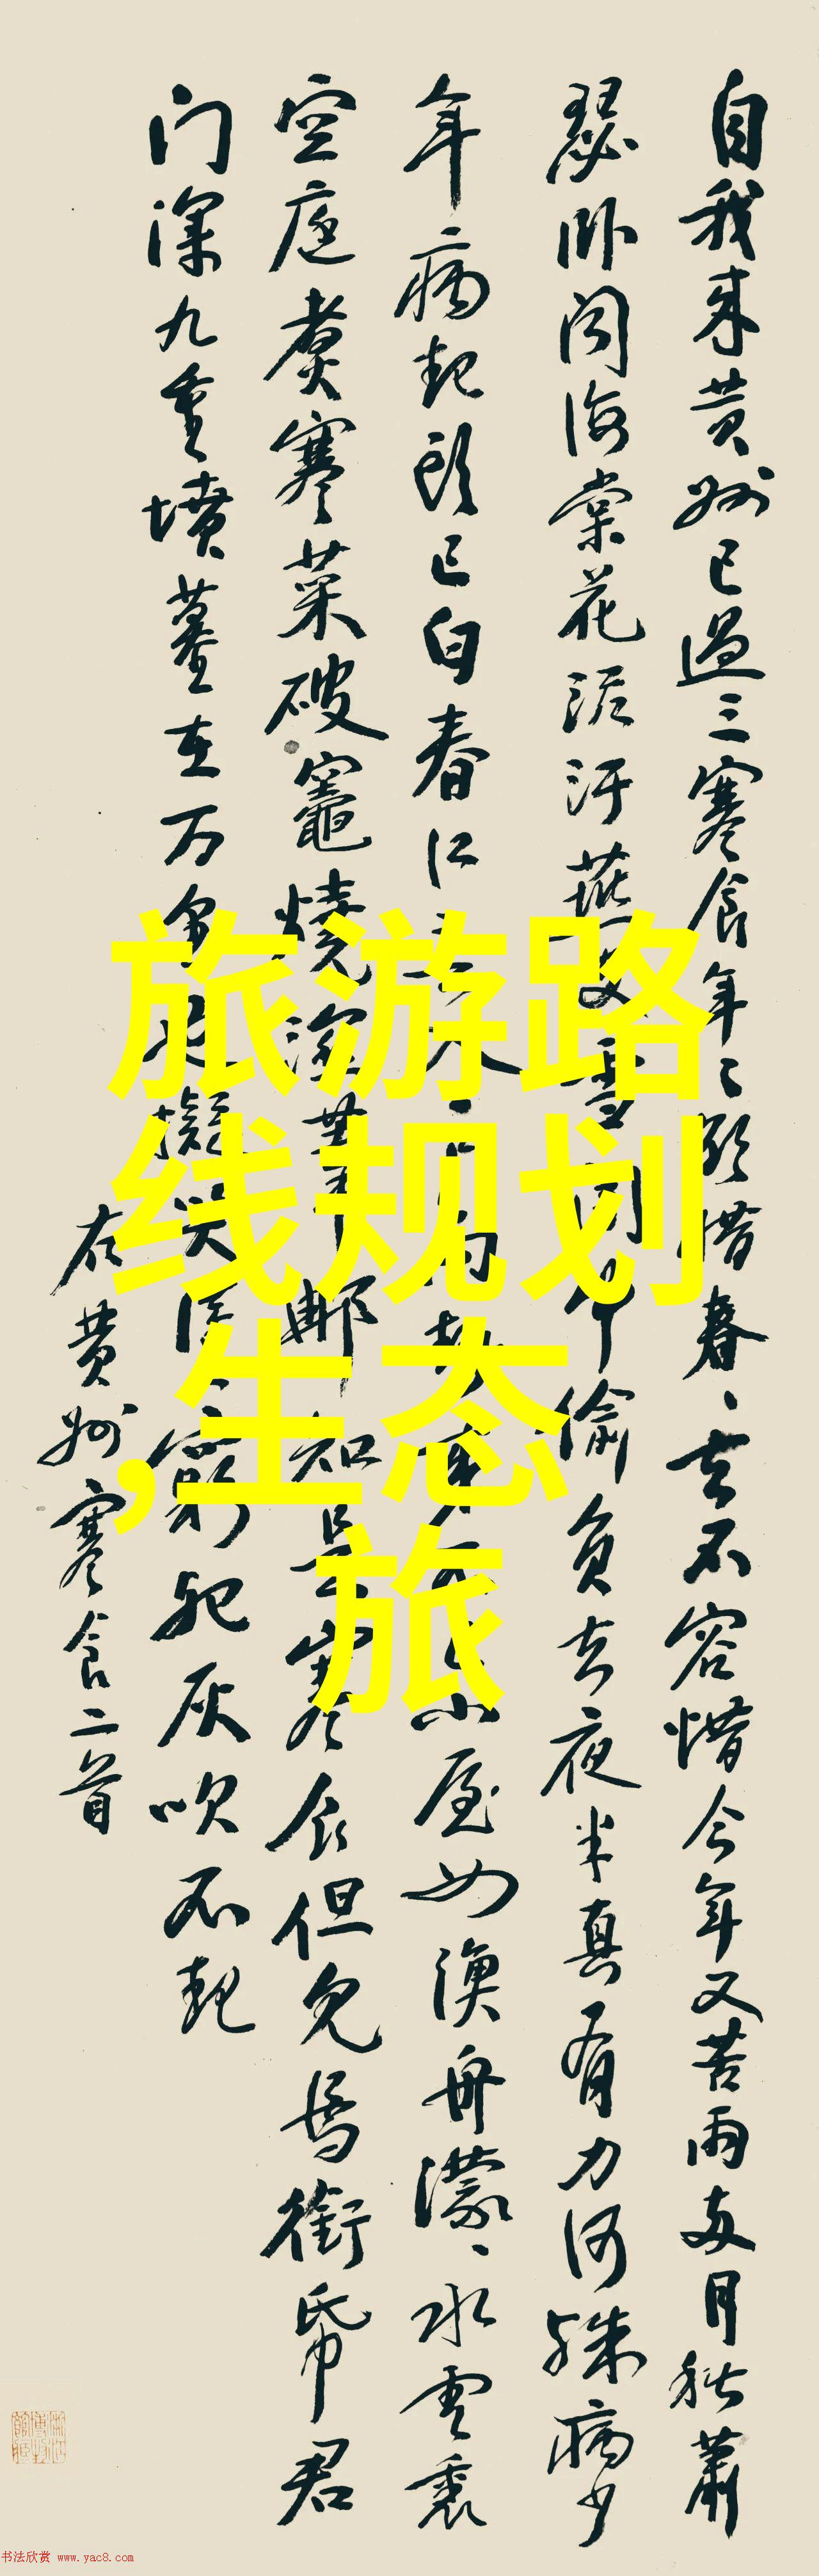 自我来黄州已過三寒食年々欲惜春々去不容惜今年又苦雨两月秋蕭
瑟卧闻海棠花泥污燕支雪闇中偷負去夜半真有力何殊病少
年病起頭已白春江欲入户雨勢来不已小屋如漁舟濛々水雲裏
空庖煮寒菜破竈燒濕葦那知是寒食但见烏銜帋君
门深九重墳墓在万里也擬哭途窮死灰吹不起
右黄州寒食二首
旅游路
线规划
,生态
旅
书法欣赏 www.yac8.com